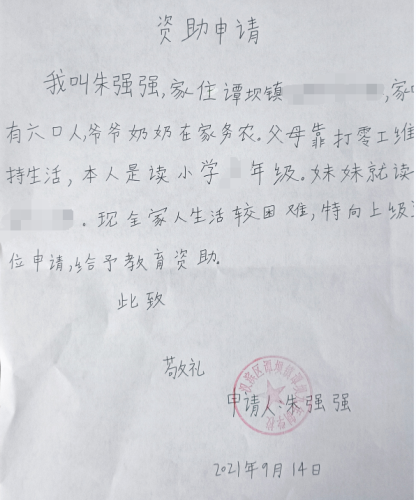 资助申请
我叫朱强强,家住谭坝镇 ,家中
有六口人,爷爷奶奶在家务农.父母靠打零工维
持生活,本人是读小学 年级.妹妹就读
.现全家人生活较困难,特向上级
位申请,给予教育资助.
此致
敬礼
申请人:朱强强
2021年9月14日